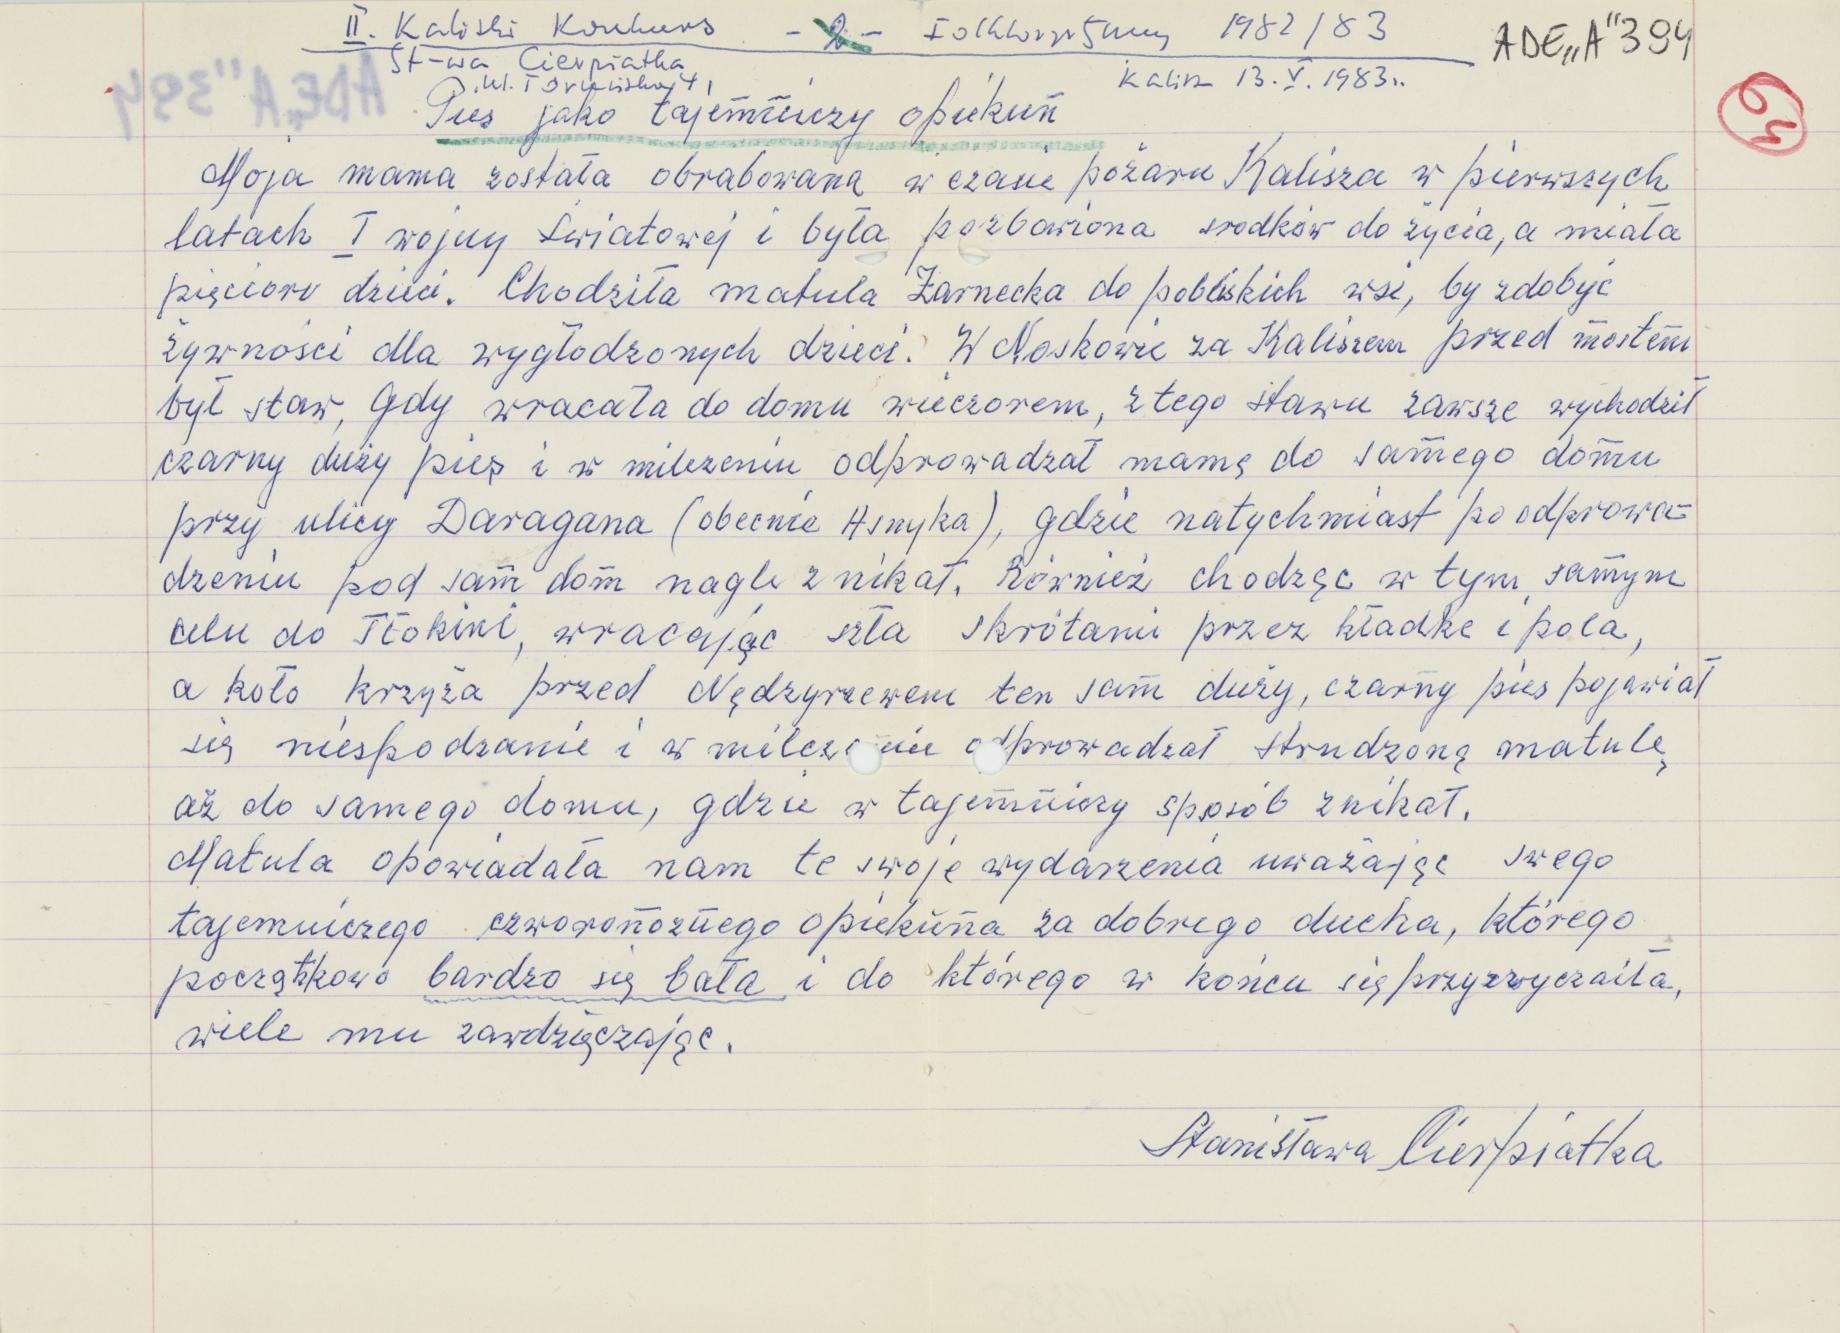 II. Kaliski Konkurs - 2 - Folklorystyczny 1982/83
ADE „A" 394
St-wa Cierpiatka
Kalisz 13.V.1983r.
64
Pies jako tajemniczy opiekun
Moja mama została obrabowana w czasie pożaru Kalisza w pierwszych
latach I wojny światowej i była pozbawiona srodków do życia, a miała
pięcioro dzieci. Chodziła matula Żarnecka do pobliskich wsi, by zdobyć
żywności dla wygłodzonych dzieci. W Noskowie za Kaliszem przed mostem
był staw, Gdy wracała do domu wieczorem, z tego stawu zawsze wychodził
czarny duży pies i w milczeniu odprowadzał mamę do samego domu
przy ulicy Daragana (obecnie Asnyka), gdzie natychmiast po odprowa-
dzeniu pod sam dom nagle znikał. Również chodząc w tym samym
celu do Tłokini, wracając szła skrótami przez kładkę i pola,
a koło krzyża przed Nędzyrzewem ten sam duży, czarny pies pojawiał
się niespodzanie i w milczeniu odprowadzał strudzoną matulę
aż do samego domu, gdzie w tajemniczy sposób znikał.
Matula opowiadała nam te swoje wydarzenia uważając swego
tajemniczego czworonożnego opiekuna za dobrego ducha, którego
początkowo bardzo się bała i do którego w końcu się przyzwyczaiła,
wiele mu zawdzięczając.
Stanisława Cierpiatka